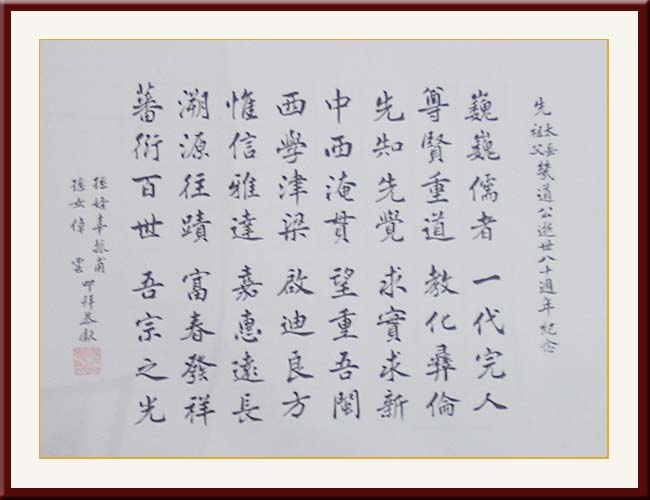 先太岳祖父幾道公逝世八十週年紀念
巍巍儒者 一代完人
尊賢重道 教化彝倫
先知先覺 求實求新
中西淹貫 望重吾閩
西學津梁 啟迪良方
惟信雅達 嘉惠遠長
溯源往蹟 富春發祥
蕃衍百世 吾宗之光
孫婿辜振甫
孫女倬雲
叩拜恭獻